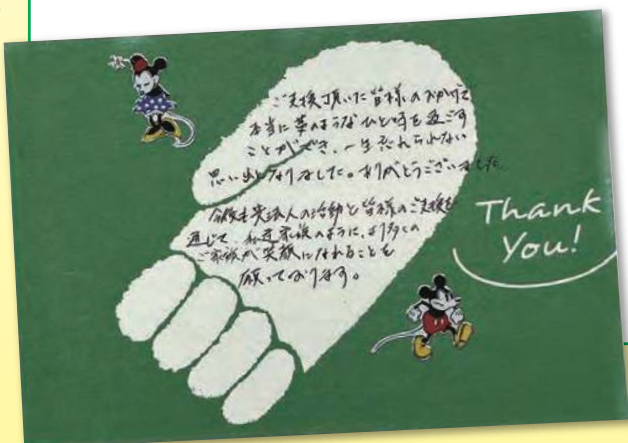 ご支援頂いた皆様のおかげで
本当に夢のようなひと時を過ごす
ことができ、一生忘れられない
思い出となりました。ありがとうございました。
今後も貴法人の活動と皆様のご支援を
通じて、私達家族のように、より多くの
ご家族が笑顔になれることを
願っております。
Thank
You!